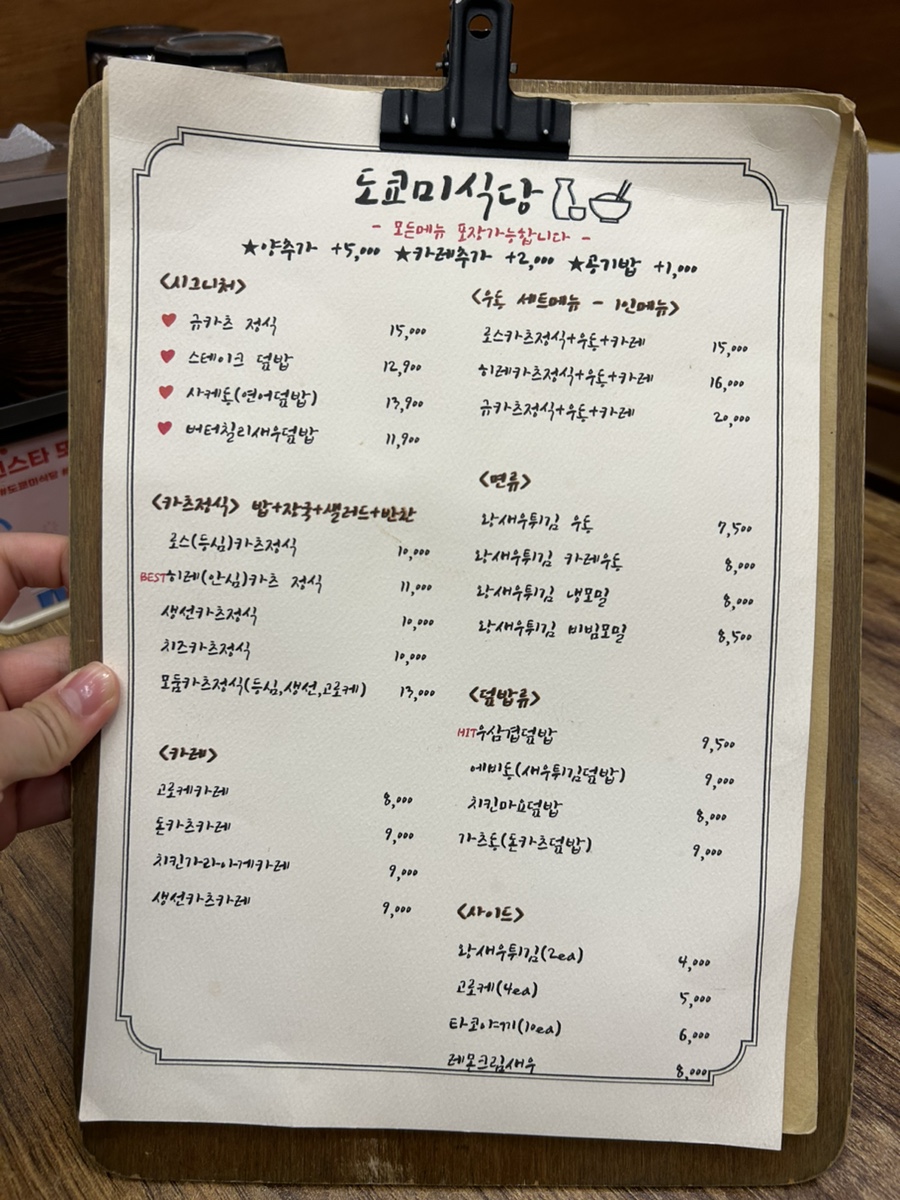 도쿄미식당
- 모든메뉴 포장가능합니다 -
★양추가 +5,000 ★카레추가 +2,000 ★공기밥 +1,000
<시그니처>
♥ 규카츠 정식 15,000
♥ 스테이크 덮밥 12,900
♥ 사케동(연어덮밥) 13,900
♥ 버터칠리새우덮밥 11,900
<카츠정식> 밥+장국+샐러드+반찬
로스(등심)카츠정식 10,000
BEST 히레(안심)카츠 정식 11,000
생선카츠정식 10,000
치즈카츠정식 10,000
모둠카츠정식(등심,생선,고로케) 13,000
<카레>
고로케카레 8,000
돈카츠카레 9,000
치킨가라아게카레 9,000
생선카츠카레 9,000
<우동 세트메뉴 - 1인메뉴>
로스카츠정식+우동+카레 15,000
히레카츠정식+우동+카레 16,000
규카츠정식+우동+카레 20,000
<면류>
왕새우튀김 우동 7,500
왕새우튀김 카레우동 8,000
왕새우튀김 냉모밀 8,000
왕새우튀김 비빔모밀 8,500
<덮밥류>
HIT 우삼겹덮밥 9,500
에비동(새우튀김덮밥) 9,000
치킨마요덮밥 8,000
가츠동(돈카츠덮밥) 9,000
<사이드>
왕새우튀김(2ea) 4,000
고로케(4ea) 5,000
타코야끼(10ea) 6,000
레몬크림새우 8,000
#도쿄미식당